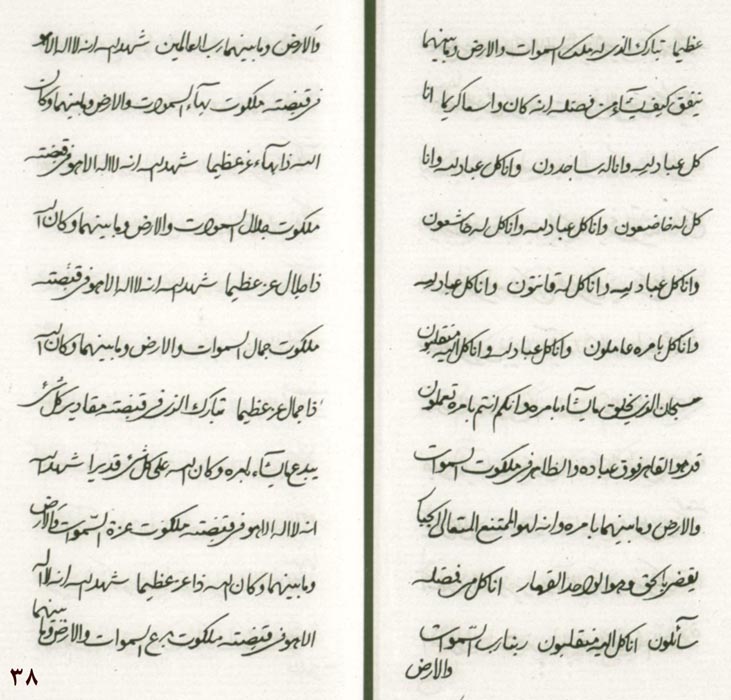 عظیما تبارک الذی له ملک السموات والارض ومابینهما
ینفق کیف یشاء من فضله انه کان واسعا کریما انا
کل عباد لله وانا له ساجدون وانا کل عباد لله وانا
کل له خاضعون وانا کل عباد لله وانا کل له خاشعون
وانا کل عباد لله وانا کل له قانتون وانا کل عباد لله
وانا کل بامره عاملون وانا کل عباد لله وانا کل الیه منقلبون
سبحان الذی یخلق مایشاء بامره وانکم انتم بامره تعملون
قد هو القاهر فوق عباده والظاهر فی ملکوت السموات
والارض ومابینهما بامره وانه لهو الممتنع المتعالی
یقضی بالحق وهو الواحد القهار انا کل من فضله
سآئلون انا کل الیه منقلبون ربنا رب السموات
والارض
والارض ومابینهما رب العالمین شهد الله انه لااله الاهو
فی قبضته ملکوت بهآء السموات والارض ومابینهما وکان
الله ذا بهآء عز عظیما شهد الله انه لااله الاهو فی قبضته
ملکوت جلال السموات والارض ومابینهما وکان الله
ذا جلال عز عظیما شهد الله انه لااله الاهو فی قبضته
ملکوت جمال السموات والارض ومابینهما وکان الله
ذا جمال عز عظیما تبارک الذی فی قبضته مقادیر کل شئ
یبدع مایشآء بامره وکان الله علی کل شئ قدیرا شهد الله
انه لااله الاهو فی قبضته ملکوت عزة السموات والارض
ومابینهما وکان الله ذا عز عظیما شهد الله انه لااله
الاهو فی قبضته ملکوت السموات والارض ومابینهما
٣٨